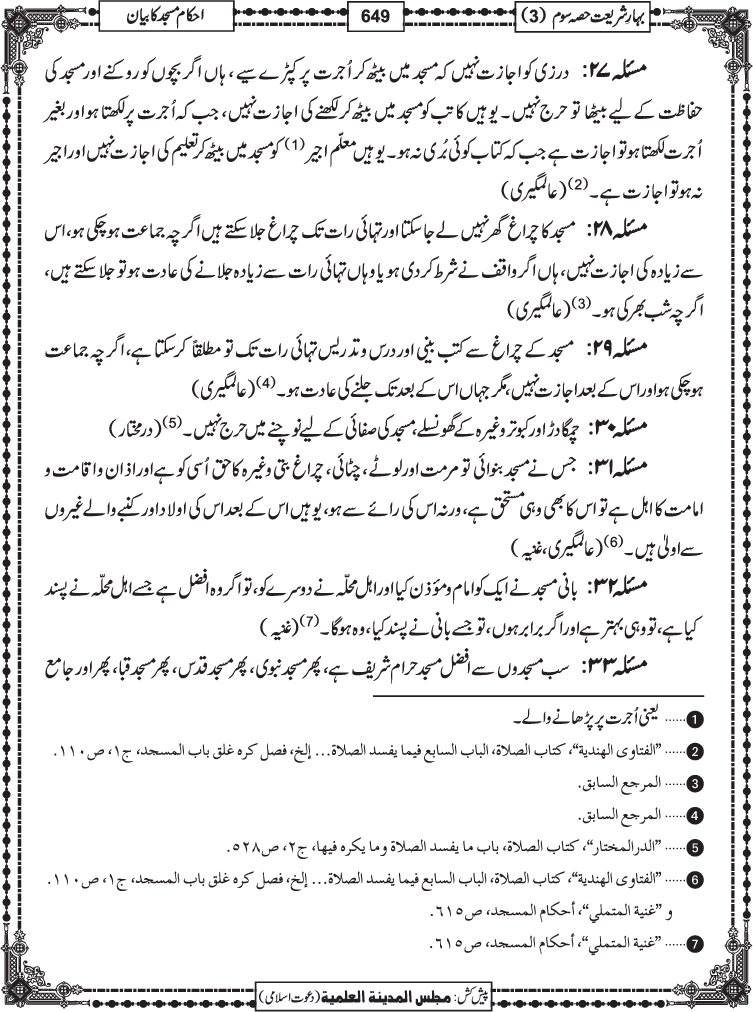 بہارِ شریعت حصہ سوم (3)
649
احکام مسجد کا بیان
مسئلہ ۲۷: درزی کو اجازت نہیں کہ مسجد میں بیٹھ کر اُجرت پر کپڑے سیے، ہاں اگر بچوں کو روکنے اور مسجد کی
حفاظت کے لیے بیٹھا تو حرج نہیں۔ یوہیں کاتب کو مسجد میں بیٹھ کر لکھنے کی اجازت نہیں، جب کہ اُجرت پر لکھتا ہو اور بغیر
اُجرت لکھتا ہو تو اجازت ہے جب کہ کتاب کوئی بُری نہ ہو۔ یوہیں معلّم اجیر (1) کو مسجد میں بیٹھ کر تعلیم کی اجازت نہیں اور اجیر
نہ ہو تو اجازت ہے۔ (2) (عالمگیری)
مسئلہ ۲۸: مسجد کا چراغ گھر نہیں لے جا سکتا اور تہائی رات تک چراغ جلا سکتے ہیں اگرچہ جماعت ہو چکی ہو، اس
سے زیادہ کی اجازت نہیں، ہاں اگر واقف نے شرط کر دی ہو یا وہاں تہائی رات سے زیادہ جلانے کی عادت ہو تو جلا سکتے ہیں،
اگرچہ شب بھر کی ہو۔ (3) (عالمگیری)
مسئلہ ۲۹: مسجد کے چراغ سے کتب بینی اور درس و تدریس تہائی رات تک تو مطلقاً کر سکتا ہے، اگرچہ جماعت
ہو چکی ہو اور اس کے بعد اجازت نہیں، مگر جہاں اس کے بعد تک جلنے کی عادت ہو۔ (4) (عالمگیری)
مسئلہ ۳۰: چمگادڑ اور کبوتر وغیرہ کے گھونسلے، مسجد کی صفائی کے لیے نوچنے میں حرج نہیں۔ (5) (درمختار)
مسئلہ ۳۱: جس نے مسجد بنوائی تو مرمت اور لوٹے، چٹائی، چراغ بتی وغیرہ کا حق اُسی کو ہے اور اذان و اقامت و
امامت کا اہل ہے تو اس کا بھی وہی مستحق ہے، ورنہ اس کی رائے سے ہو، یوہیں اس کے بعد اس کی اولاد اور کنبے والے غیروں
سے اولیٰ ہیں۔ (6) (عالمگیری، غنیہ)
مسئلہ ۳۲: بانی مسجد نے ایک کو امام و مؤذن کیا اور اہل محلّہ نے دوسرے کو، تو اگر وہ افضل ہے جسے اہل محلّہ نے پسند
کیا ہے، تو وہی بہتر ہے اور اگر برابر ہوں، تو جسے بانی نے پسند کیا، وہ ہوگا۔ (7) (غنیہ)
مسئلہ ۳۳: سب مسجدوں سے افضل مسجد حرام شریف ہے، پھر مسجد نبوی، پھر مسجد قدس، پھر مسجد قبا، پھر اور جامع
1 ...... یعنی اُجرت پر پڑھانے والے۔
2 ...... ”الفتاوی الهندیة“، کتاب الصلاة، الباب السابع فیما یفسد الصلاة... إلخ، فصل کره غلق باب المسجد، ج۱، ص۱۱۰.
3 ...... المرجع السابق.
4 ...... المرجع السابق.
5 ...... ”الدرالمختار“، کتاب الصلاة، باب ما یفسد الصلاة وما یکره فیها، ج۲، ص۵۲۸.
6 ...... ”الفتاوی الهندیة“، کتاب الصلاة، الباب السابع فیما یفسد الصلاة... إلخ، فصل کره غلق باب المسجد، ج۱، ص۱۱۰.
و ”غنیة المتملي“، أحکام المسجد، ص۶۱۵.
7 ...... ”غنیة المتملي“، أحکام المسجد، ص۶۱۵.
پیش کش: مجلس المدینة العلمیة (دعوت اسلامی)